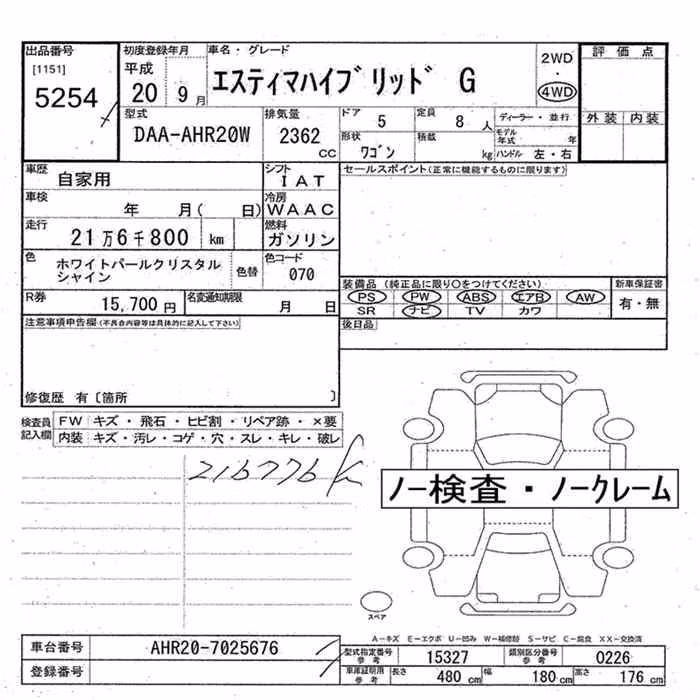 出品番号
[1151]
5254
初度登録年月
平成
20 9月
車名・グレード
エスティマハイブリッド G
2WD
4WD
評価点
外装 内装
型式
DAA-AHR20W
排気量
2362
cc
ドア
5
定員
8人
ディーラー・並行
形状
ワゴン
積載
kg
モデル年式 年
ハンドル 左・右
車歴
自家用
シフト
IAT
セールスポイント(正常に機能するものに限ります)
車検
年 月( 日)
冷房
WAAC
走行
21万6千800 km
燃料
ガソリン
色
ホワイトパールクリスタル
シャイン
色替
色コード
070
装備品 (純正品に限り○をつけてください)
新車保証書
PS PW ABS エアB AW
有・無
SR ナビ TV カワ
R券
15,700円
名変通知期限
月 日
後日品
注意事項申告欄(不具合内容等は具体的に記入して下さい)
修復歴 有〔箇所 〕
検査員
記入欄
FW キズ・飛石・ヒビ割・リペア跡・×要
内装 キズ・汚レ・コゲ・穴・スレ・キレ・破レ
216776
ノー検査・ノークレーム
スペア
A-キズ E-エクボ U-凹み W-補修跡 S-サビ C-腐食 XX-交換済
車台番号
AHR20-7025676
登録番号
型式指定番号
参考
15327
類別区分番号
参考
0226
車庫証明用
参考
長さ
480cm
幅
180cm
高さ
176cm